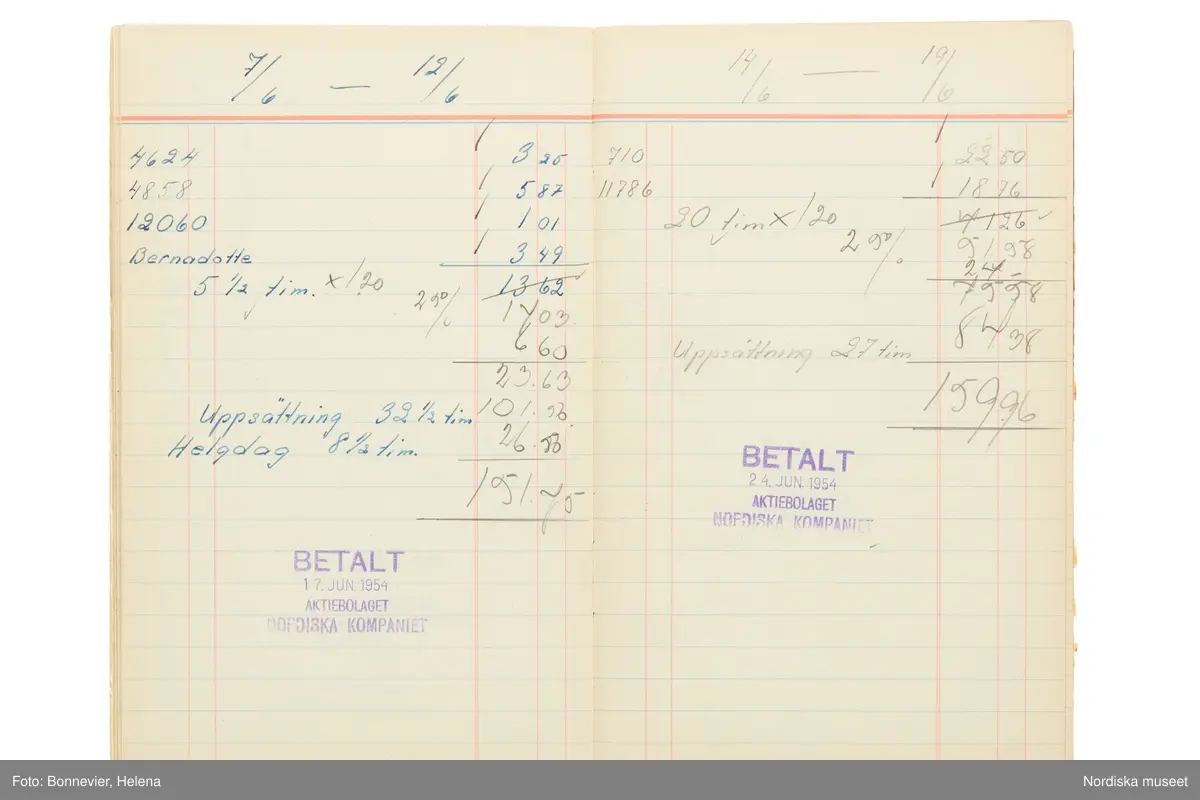 7/6 — 12/6
4624 3 25
4858 5 87
12060 1 01
Bernadotte 3 49
5 1/2 tim. x 1.20 13 62
25% 17 03
6 60
23.63
Uppsättning 32 1/2 tim 101.56
Helgdag 8 1/2 tim. 26.56
151.75
BETALT
17. JUN. 1954
AKTIEBOLAGET
NORDISKA KOMPANIET
14/6 — 19/6
710 22 50
11786 18 76
20 tim x 1 20 41 26
25% 51 58
24 -
75 58
Uppsättning 27 tim 84 38
159.96
BETALT
24. JUN. 1954
AKTIEBOLAGET
NORDISKA KOMPANIET
Foto: Bonnevier, Helena
Nordiska museet